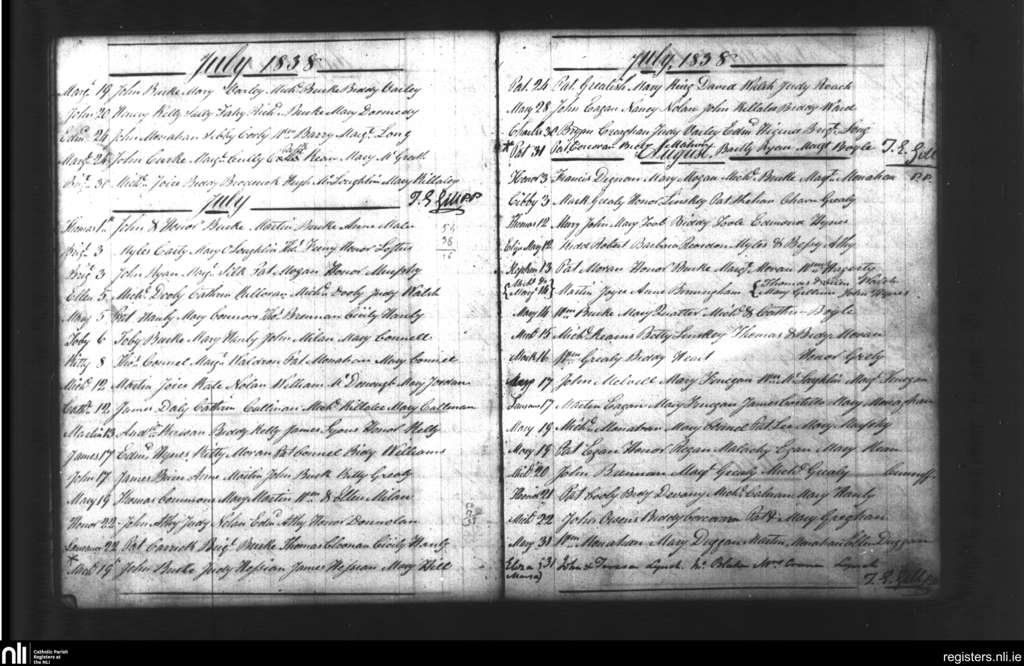 July 1838
Marg.t 19 John Burke Mary Varley Mich.l Burke Biddy Varley
John 20 Henry Kelly Rich.d Burke Mary
Edm.d 24 John Monahan Sibby Corly W.m Barry Marg.t Long
Marg.t 24 John Marg.t Cully Kean Mary McGrath
Brig.t 30 Mich.l Joice Biddy Broderick Hugh McLoughlin Mary Killalea
July T. E. Gill P.P.
Thomas 1st John & Honor Burke Martin Burke Anne Male
Brig.t 3 Myles Early Mary Cloughlin Tho.s Feeny Honor Loftus
Brig.t 3 John Ryan Marg.t Silk Pat Mogan Honor Murphy
Ellen 5 Mich.l Dooly Cathrin Mich.l Dooly Judy Walsh
Mary 5 Pat Hanly Mary Connors Tho.s Brennan Cicily Hanly
Toby 6 Toby Burke Mary Hanly John Milan Mary Connell
Kitty 8 Tho.s Connel Marg.t Waldron Pat Monahan Mary Connel
Mich.l 12 Martin Joice Kate Nolan William McDonough Mary Jordan
Cath.n 12 James Daly Cathrin Cullinan Mich.l Killalea Mary Callanan
Martin 13 And.w Biddy Kelly James Lyons Honor Kelly
James 17 Edm.d Hynes Kitty Moran Pat Connell Bidy Williams
John 17 James Brien Anne Martin John Burk Kitty Grealy
Mary 19 Thomas Commons Mary Martin W.m & Ellen Milan
Honor 22 John Athy Judy Nolan Edm.d Athy Honor Donnolan
Laurance 22 Pat Carrick Brig.t Burke Thomas Cloonan Cicily Hanly
Mich.l 19 John Burke Judy Hession James Hession Mary Hill
July 1838
Pat. 24 Pat. Grealish Mary King David Walsh Judy Roach
Mary 28 John Eagan Nancy Nolan John Killalea Biddy Ward
Charles 30 Bryan Creaghan Judy Varley Edm.d Brig.t Long
Pat 31 Pat Corcoran Biddy Batty Ryan Marg.t Boyle T. E. Gill
August P.P.
Honor 3 Francis Dignan Mary Mogan Mich.l Burke Marg.t Monahan
Sibby 3 Mark Grealy Honor Linskey Pat Grealy
Thomas 12 Mary John Mary Toole Biddy Toole Edmond Hynes
Eliza Mary 12 Robert Barbara Reardon Myles & Bessy Athy
Stephen 13 Pat Moran Honor Burke Marg.t Moran W.m Hagarty
Marg.t 14 Martin Joyce Anne Birmingham Thomas Walsh
Mary John Hynes
Mary 14 W.m Burke Mary Quarter Mich.l & Cathrin Boyle
Mich.l 15 Mich.l Kearns Betty Linskey Thomas & Bidy Moran
Mark 16 W.m Grealy Biddy Hart Honor Grealy
Mary 17 John Melville Mary Finegan W.m McLoghlin Marg.t Finegan
17 Martin Eagan Mary Finegan James Costello Mary Monaghan
Mary 19 Mich.l Monahan Mary Connel Pat Lee Mary Murphy
Mary 19 Pat Egan Honor Regan Malachy Egan Mary Kean
Mich.l 20 John Brennan Marg.t Grealy Mich.l Grealy
Honor 21 Pat Dooly Bidy Devany Mich.l Calanan Mary Hanly
Mich.l 22 John Owens Biddy Corcoran Pat & Mary Greghan
Mary 31 W.m Monahan Mary Duggan Martin Monahan Ellen Duggan
Eliza Maria 31 John & Teresa Lynch Blake M.rs Lynch
T. E. Gill P.P.
nli Catholic Parish Registers at the NLI
registers.nli.ie